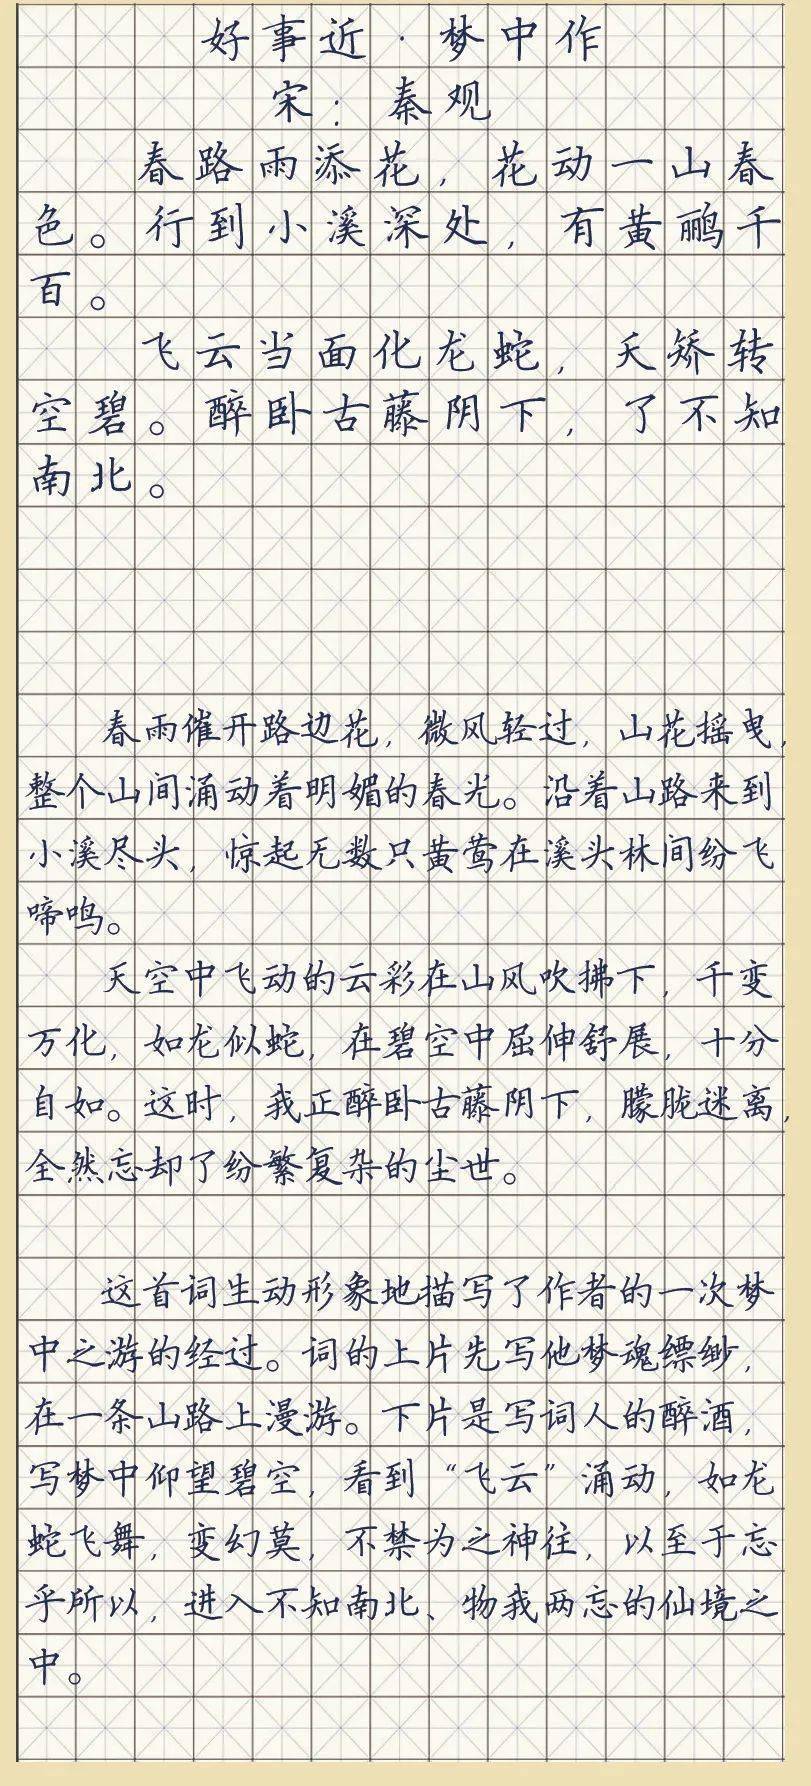 好事近·梦中作
宋：秦观
春路雨添花，花动一山春
色。行到小溪深处，有黄鹂千
百。
飞云当面化龙蛇，夭矫转
空碧。醉卧古藤阴下，了不知
南北。
春雨催开路边花，微风轻过，山花摇曳，
整个山间涌动着明媚的春光。沿着山路来到
小溪尽头，惊起无数只黄莺在溪头林间纷飞
啼鸣。
天空中飞动的云彩在山风吹拂下，千变
万化，如龙似蛇，在碧空中屈伸舒展，十分
自如。这时，我正醉卧古藤阴下，朦胧迷离，
全然忘却了纷繁复杂的尘世。
这首词生动形象地描写了作者的一次梦
中之游的经过。词的上片先写他梦魂缥缈，
在一条山路上漫游。下片是写词人的醉酒，
写梦中仰望碧空，看到“飞云”涌动，如龙
蛇飞舞，变幻莫，不禁为之神往，以至于忘
乎所以，进入不知南北、物我两忘的仙境之
中。